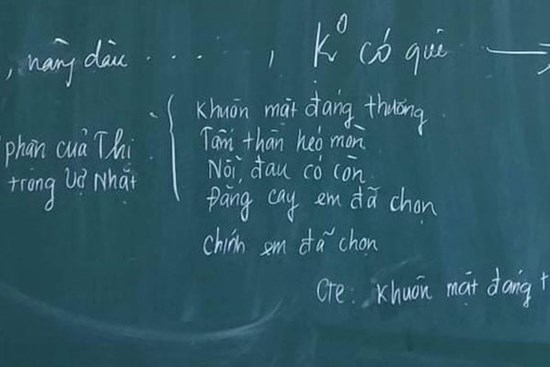 , nàng dâu . . . . , K° có quê →
phận của Thị
trong Vợ Nhặt
Khuôn mặt đáng thương
Tấm thân héo mòn
Nỗi đau có còn
Đắng cay em đã chọn
Chính em đã chọn
Cte: Khuôn mặt đáng t